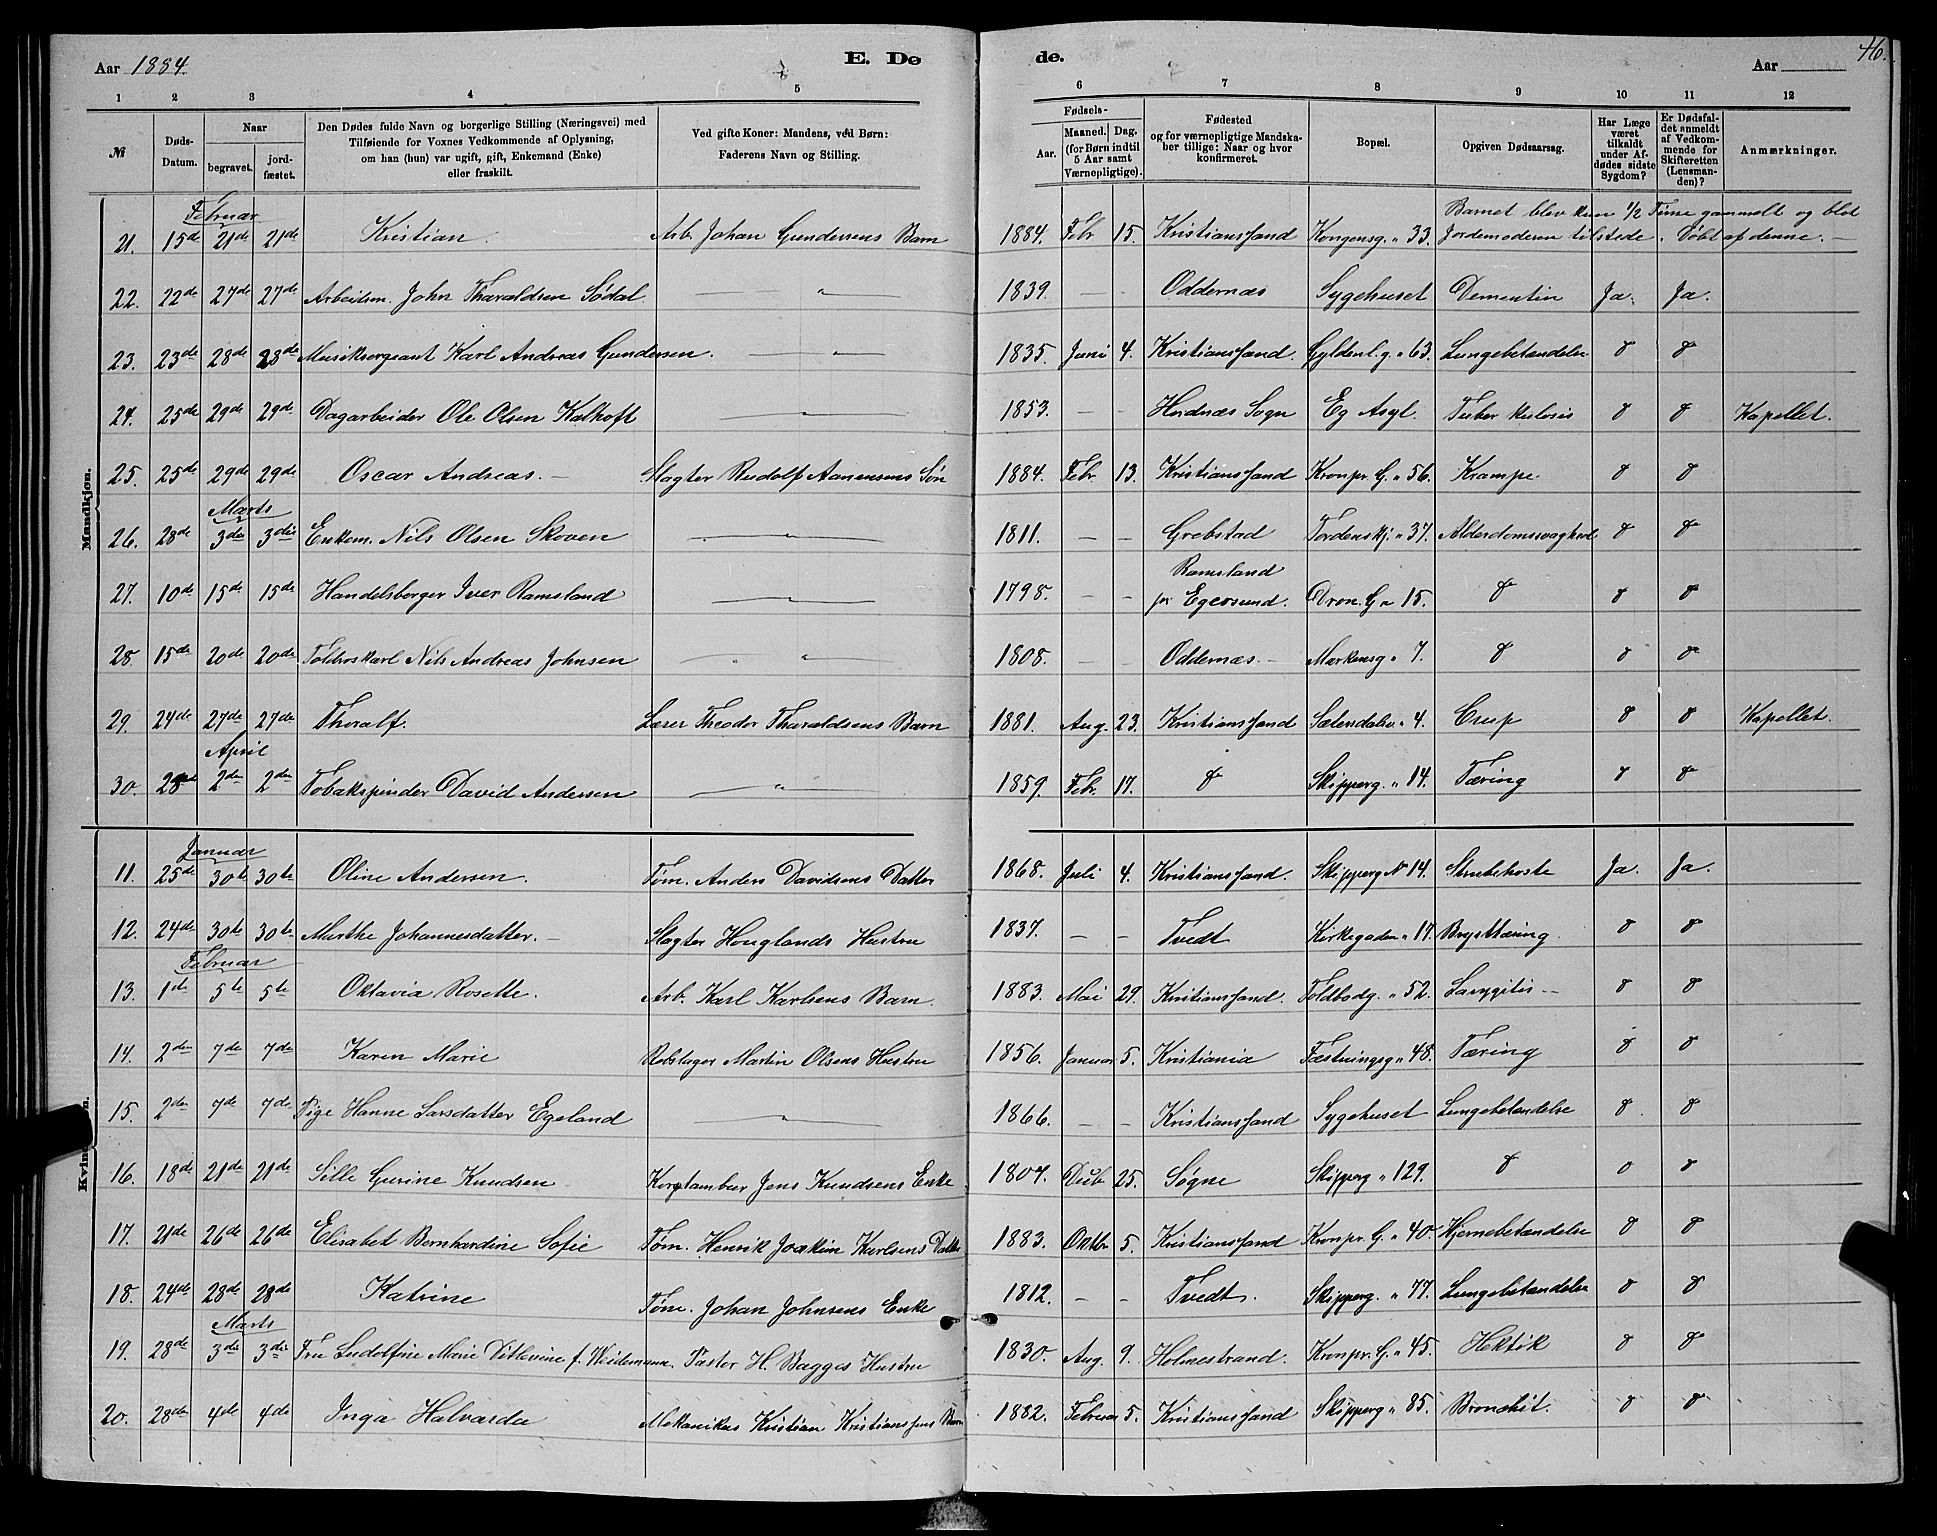 Aar 1884. E. Døde. Aar 46.
1 2 3 4 5 6 7 8 9 10 11 12
№ Døds-Datum. Naar begravet. jordfæstet. Den Dødes fulde Navn og borgerlige Stilling (Næringsvei) med Tilføiende for Voxnes Vedkommende af Oplysning, om han (hun) var ugift, gift, Enkemand (Enke) eller fraskilt. Ved gifte Koner: Mandens, ved Børn: Faderens Navn og Stilling. Fødsels- Aar. Maaned. Dag. (for Børn indtil 5 Aar samt Værnepligtige). Fødested og for værnepligtige Mandskaber tillige: Naar og hvor konfirmeret. Bopæl. Opgiven Dødsaarsag. Har Læge været tilkaldt under Afdødes sidste Sygdom? Er Dødsfaldet anmeldt af Vedkommende for Skifteretten (Lensmanden)? Anmærkninger.
Mandkjøn.
Februar
21. 15de 21de 21de Kristian. Arb. Johan Gundersens Barn 1884. Febr 15. Kristianssand Kongensg. " 33. Barnet blev kun 1/2 Time gammelt og blot Jordemoderen tilstede. Døbt af denne. –
22. 22de 27de 27de Arbeidsm. John Tharaldsen Sødal — " — 1839. – – Oddernæs Sygehuset Dementia Ja. Ja.
23. 23de 28de 28de Musiksergeant Karl Andreas Gundersen. — " — 1835. Juni 4. Kristianssand. Gyldenl.g. " 63. Lungebetændelse do do
24. 25de 29de 29de Dagarbeider Ole Olsen Kalhoft — " — 1853. – – Herdnæs Sogn Eg Asyl. Tuberkulosis do do Kapellet.
25. 25de 29de 29de Oscar Andreas. – Slagter Rudolf Aanensens Søn 1884. Febr 13. Kristianssand Kronpr. G. " 56. Krampe. do do
Marts
26. 28de 3die 3die Enkem. Nils Olsen Skoven — " — 1811. – – Grebstad Tordenskj. " 37. Alderdomssvaghed do do
27. 10de 15de 15de Handelsborger Iver Ramsland — " — 1798. – – Ramsland pr Egersund. Dron. G " 15. do do do
28 15de 20de 20de Toldroskarl Nils Andreas Johnsen — " — 1808. – – Oddernæs. – Markensg " 7. do do do
29. 24de 27de 27de Thoralf. Lærer Theodor Tharaldsens Barn 1881. Aug. 23. Kristianssand Sælendalsv. " 4. Crup do do Kapellet.
April
30. 28de 2den 2den Tobakspinder David Andersen — " — 1859. Febr. 17. do Skipperg. " 14. Tæring do do
Kvindekjøn.
Januar
11. 25de 30te 30te Oline Andersen. Tøm. Anders Davidsens Datter 1868. Juli 4. Kristianssand. Skipperg № 14. Strubehoste Ja. Ja.
12. 24de 30te 30te Marthe Johannesdatter. – Slagter Houglands Hustru 1837. – – Tvedt Kirkegaden " 17. Brysttæring. do do
Februar
13. 1ste 5te 5te Oktavia Rosette. Arb. Karl Karlsens Barn. 1883. Mai 29. Kristianssand. Toldbodg. " 52. Laryngitis – do do
14. 2den 7de 7de Karen Marie Rebslager Martin Olsens Hustru 1856. Januar 5. Kristiania Fæstningsg " 48. Tæring do do
15. 2den 7de 7de Pige Hanne Larsdatter Egeland — " — 1866. – – Kristianssand Sygehuset Lungebetændelse do do
16. 18de 21de 21de Sille Gurine Knudsen Korpstambur Jens Knudsens Enke 1804. Debr 25. Søgne Skipperg " 129. do do do
17. 21de 26de 26de Elisabet Bernhardine Sofie Tøm. Henrik Joakim Karlsens Datter 1883. Oktbr 5. Kristianssand Kronpr. G. " 40. Hjernebetændelse do do
18. 24de 28de 28de Katrine Tøm. Johan Johnsens Enke 1812. – – Tvedt. Skipperg. " 77. Lungebetændelse do do
Marts
19. 28de 3die 3die Fru Ludolfine Marie Ditlevine f. Weidemann. Pastor H. Bagges Hustru 1830. Aug. 9. Holmestrand. Kronpr. G. " 45. Hektik do do
20. 28de 4de 4de Inga Halvarda Mekanikus Kristian Kristianssens Barn 1882. Februar 5. Kristianssand Skipperg " 85. Bronchit. do do